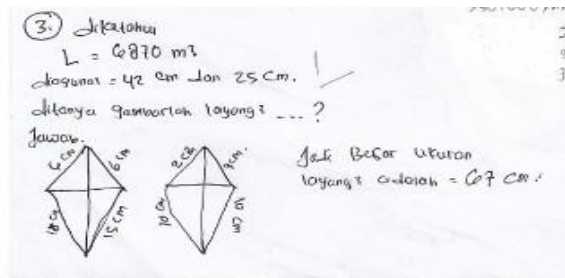 3. diketahui
L = 6870 m³
diagonal = 42 cm dan 25 cm.
ditanya gambarlah layang² ... ?
Jawab.
6 cm
6 cm
18 cm
15 cm
2 cm
10 cm
10 cm
Jadi Besar Ukuran
layang² adalah = 67 cm.